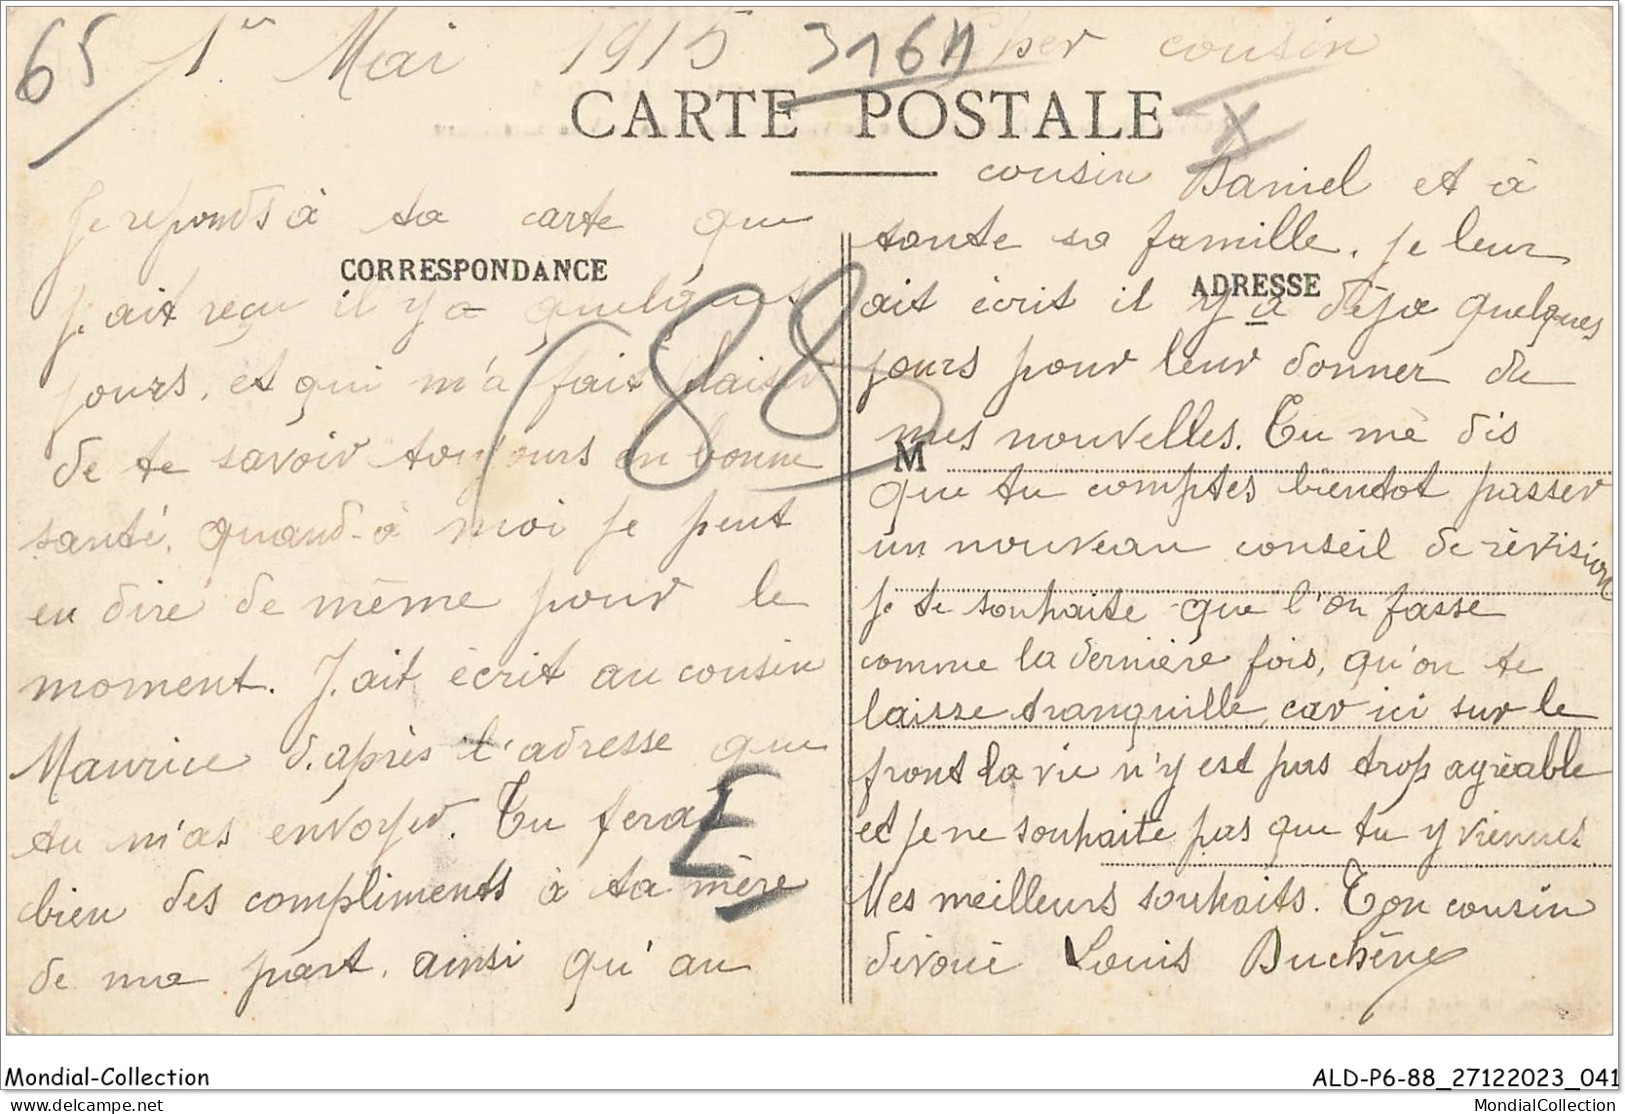 65 1er Mai 1915 3164 Cher cousin
CARTE POSTALE
X
Je reponds à ta carte que
CORRESPONDANCE
j'ait reçu il y a quelques
jours, et qui m'a fait plaisir
de te savoir toujours en bonne
santé, quand-à moi je peut
en dire de même pour le
moment. J'ait écrit au cousin
Maurice d'après l'adresse que
tu m'as envoyer. Tu feras
bien des compliments à ta mère
de ma part, ainsi qu'au
(88)
E
cousin Daniel et à
toute sa famille. je leur
ADRESSE
ait écrit il y a déja quelques
jours pour leur donner de
mes nouvelles. Tu me dis
M
que tu comptes bientot passer
un nouveau conseil de révision
je te souhaite que l'on fasse
comme la dernière fois, qu'on te
laisse tranquille, car ici sur le
front la vie n'y est pas trop agréable
et je ne souhaite pas que tu y viennes
Mes meilleurs souhaits. Ton cousin
dévoué Louis Duchêne
Mondial-Collection
ALD-P6-88_27122023_041
ma text
MondialCollection